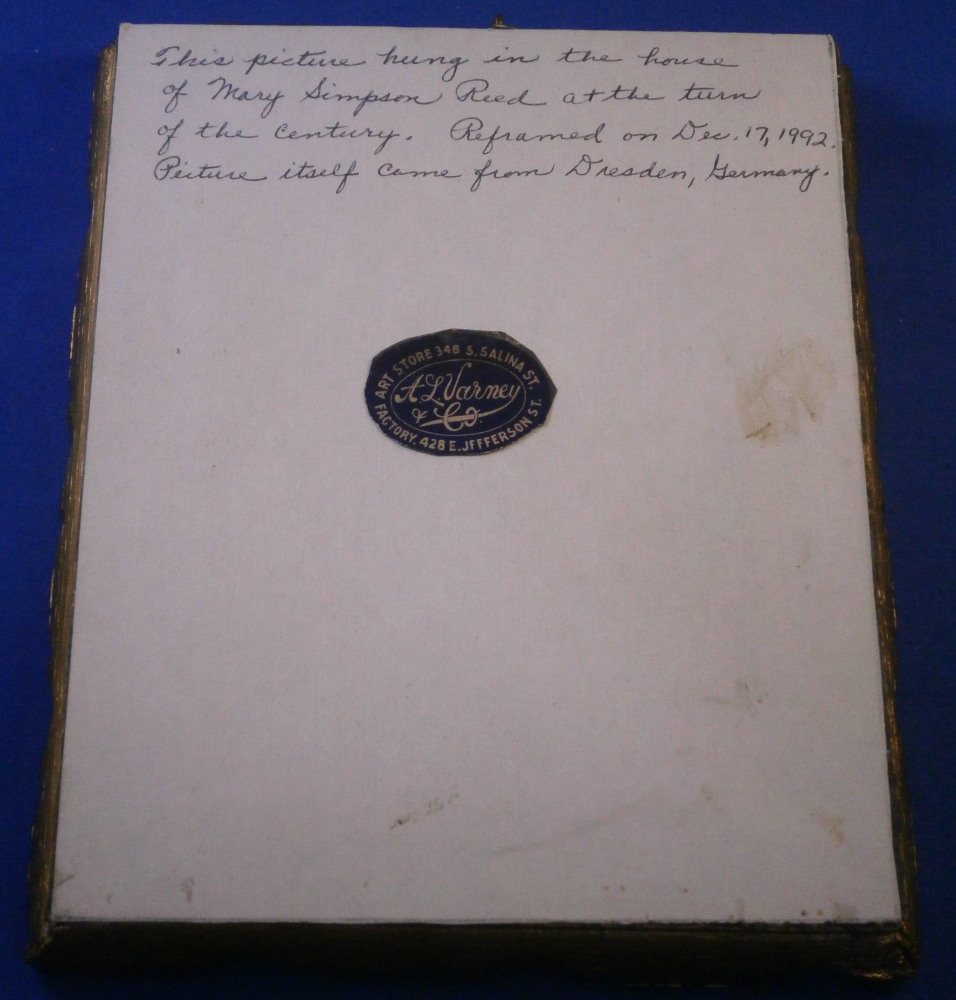 This picture hung in the house
of Mary Simpson Reed at the turn
of the century. Reframed on Dec. 17, 1992.
Picture itself came from Dresden, Germany.
ART STORE 348 S. SALINA ST.
A.L. Varney
& Co.
FACTORY. 428 E. JEFFERSON ST.